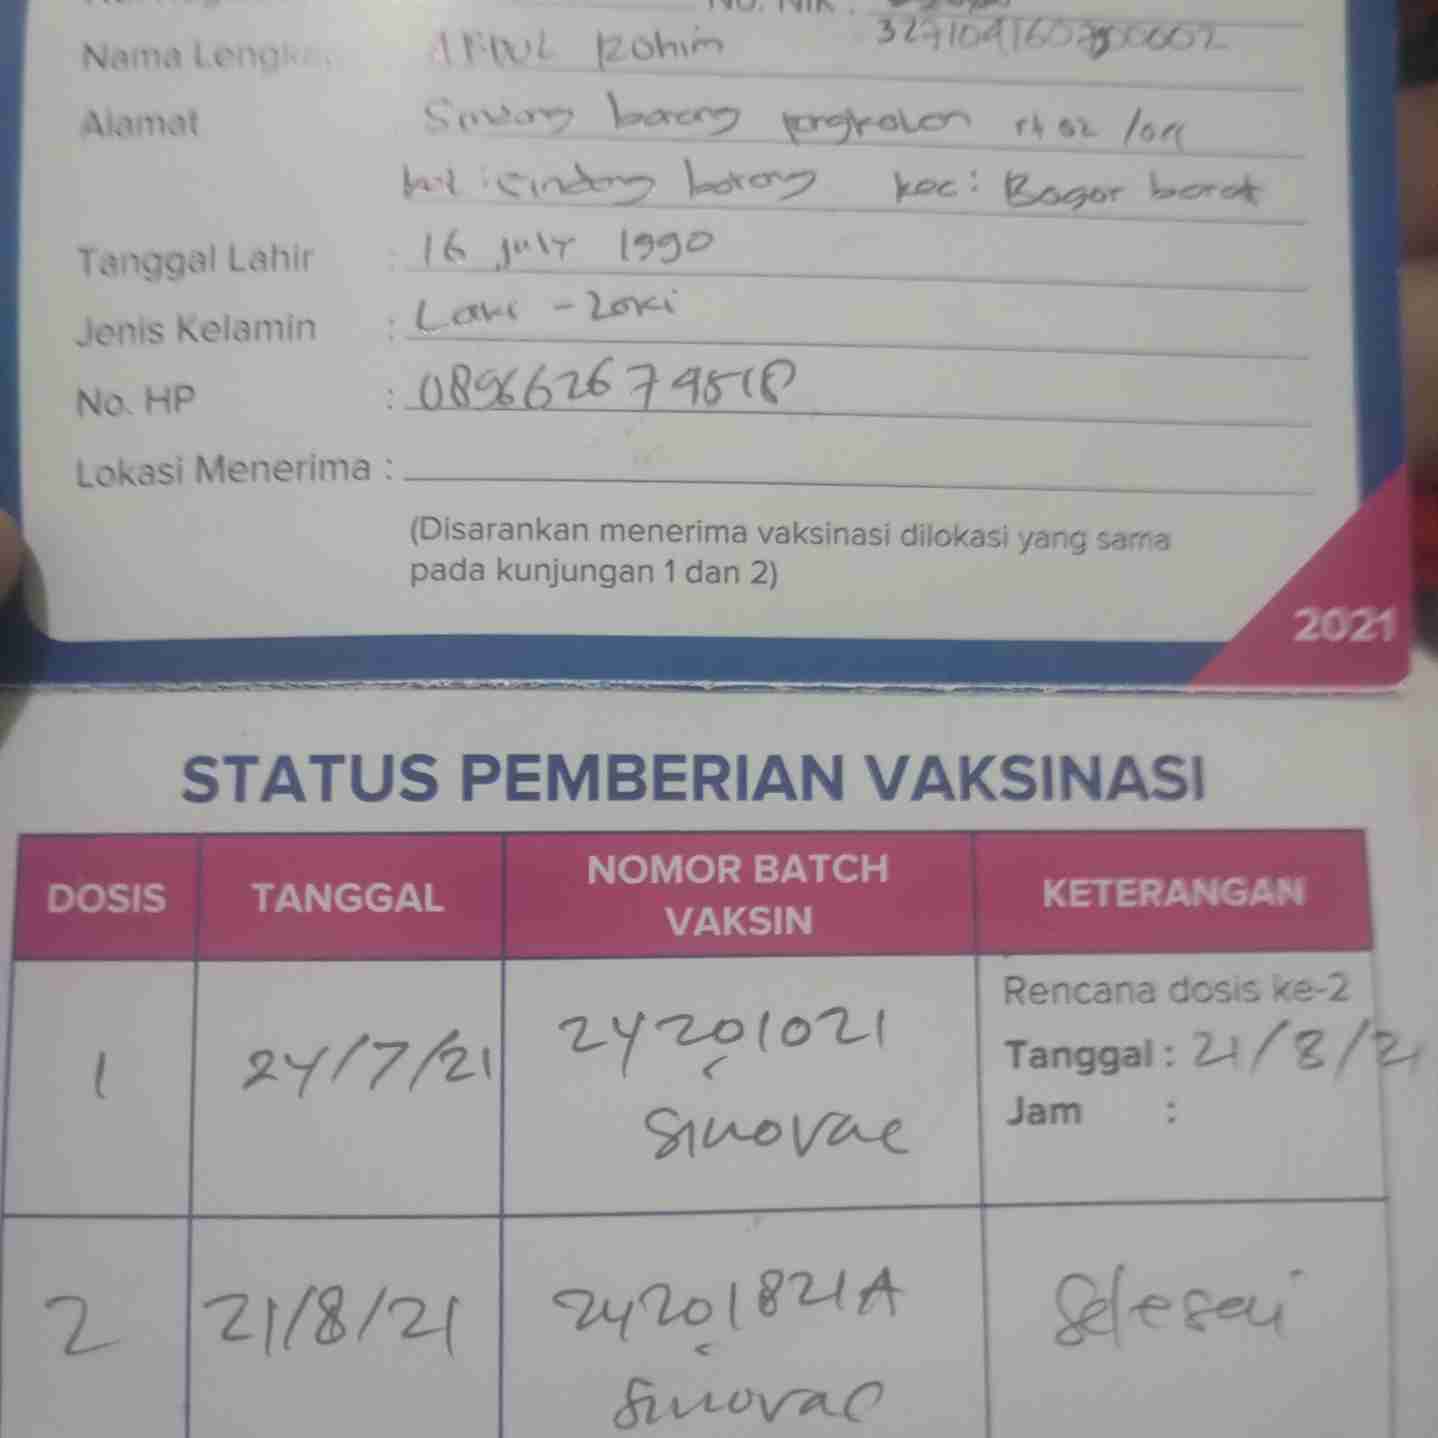 No. NIK :
Nama Lengka Abdul Rohim
Alamat Sindang barang pengkolan rt 02 /04
kel : sindang barang kec : Bogor barat
Tanggal Lahir : 16 july 1990
Jenis Kelamin : Laki - Laki
No. HP : 089662679518
Lokasi Menerima :
(Disarankan menerima vaksinasi dilokasi yang sama
pada kunjungan 1 dan 2)
2021
STATUS PEMBERIAN VAKSINASI
DOSIS TANGGAL NOMOR BATCH VAKSIN KETERANGAN
1 24/7/21 24201021 Sinovac Rencana dosis ke-2
Tanggal : 21/8/21
Jam :
2 21/8/21 24201821A Sinovac Selesai